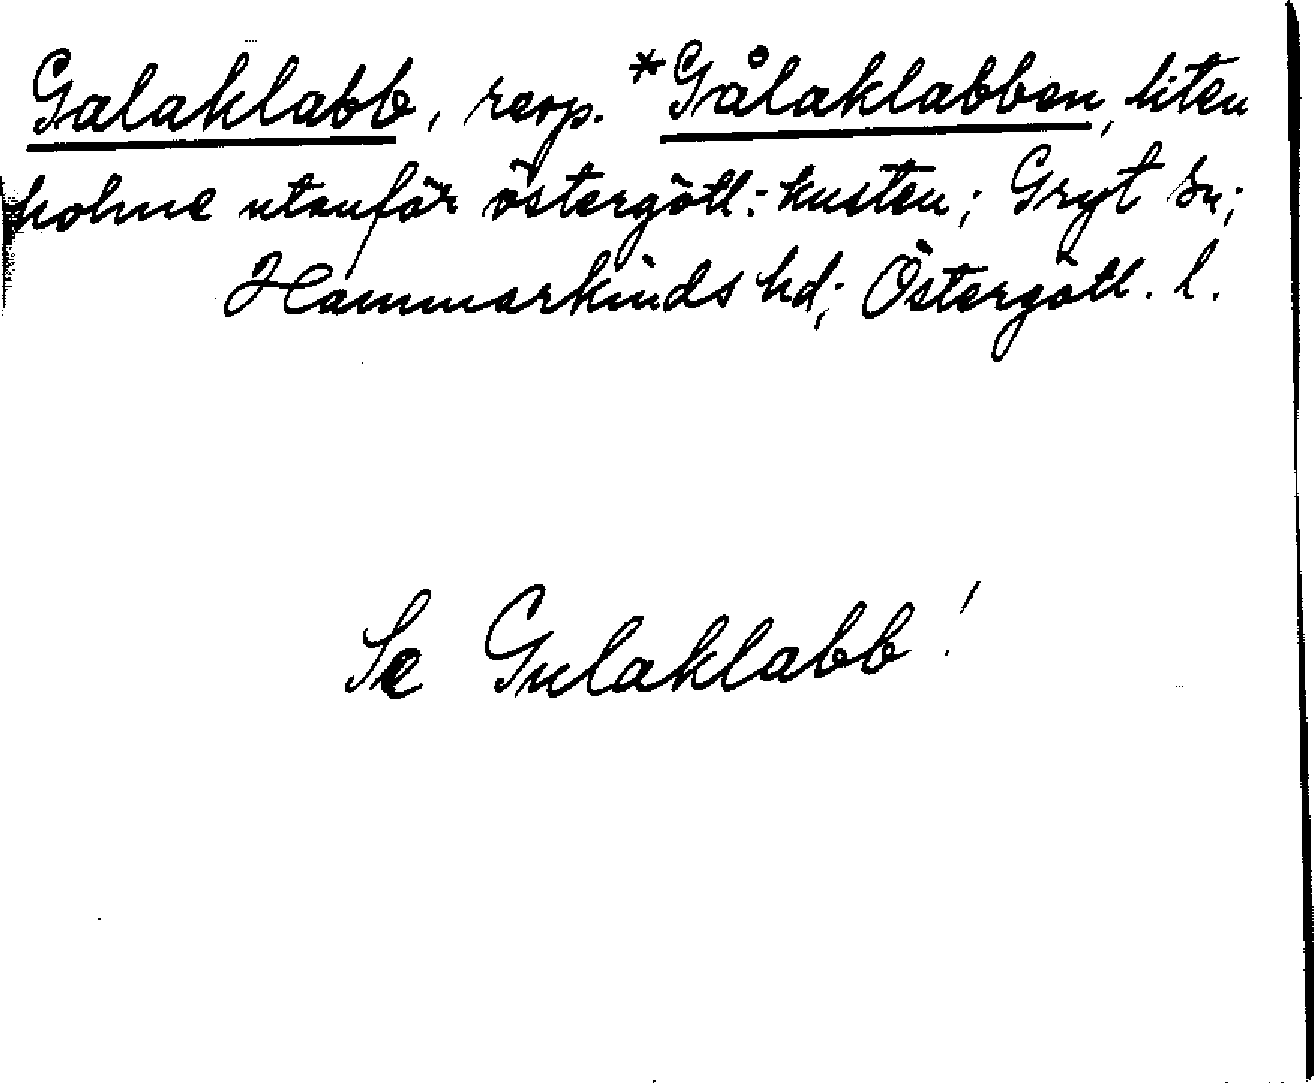 Galaklabb, resp. *Gålaklabben, liten
holme utanför östergötl. kusten; Gryt sn;
Hammarkinds hd; Östergötl. l.
Se Gulaklabb!